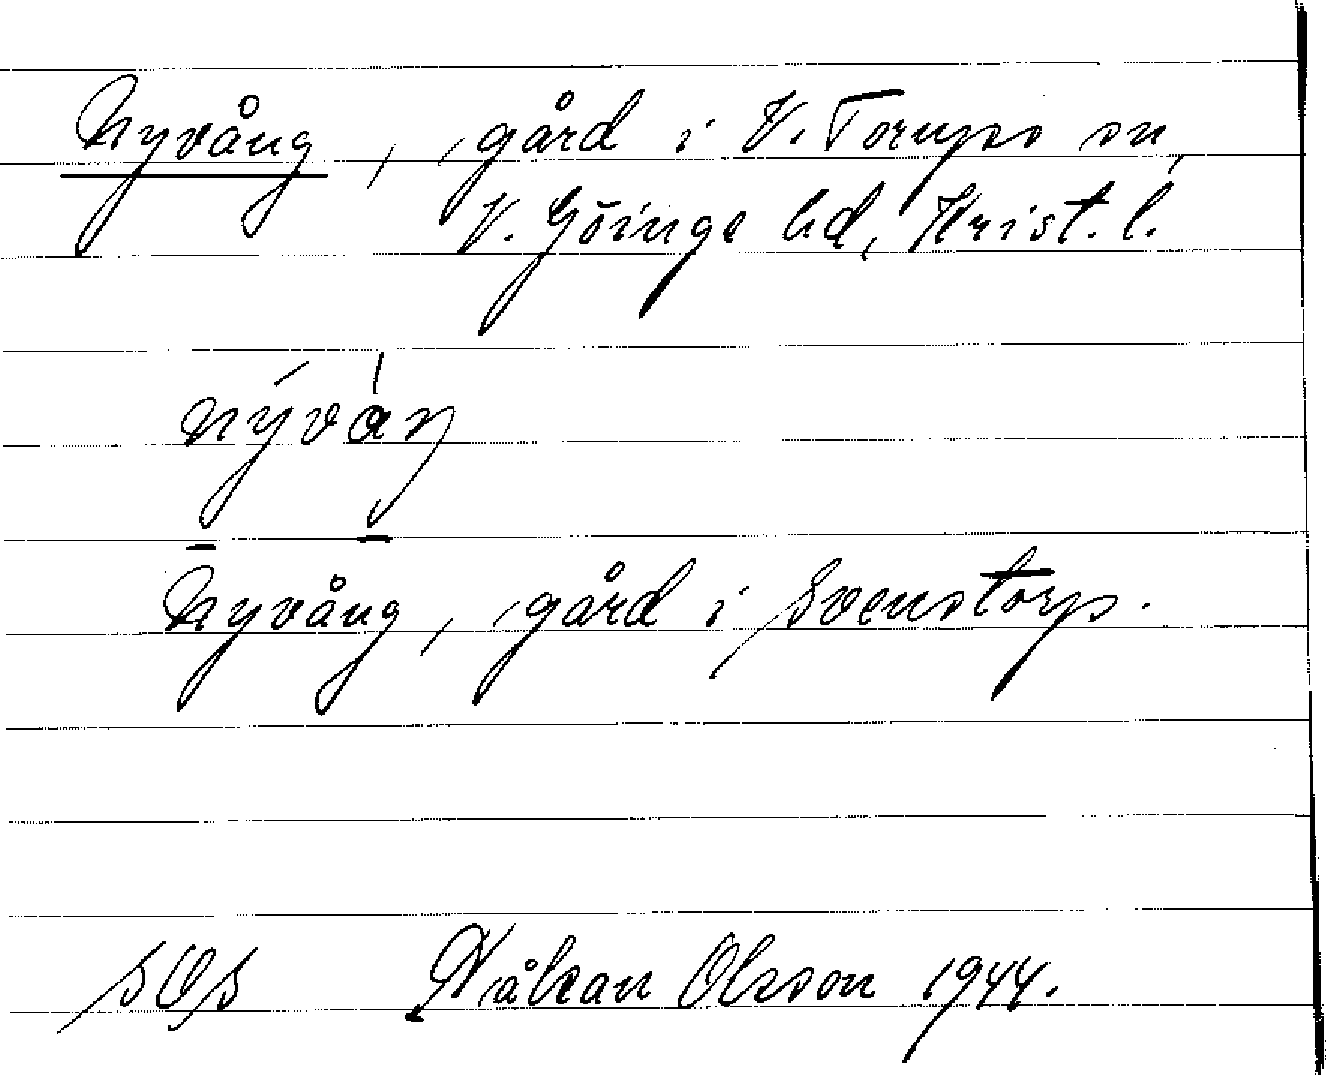 Nyvång, gård i V. Torups sn,
V. Göinge hd, Krist. l.
nýváŋ
Nyvång, gård i Svenstorp.
SOS Håkan Olsson 1944.